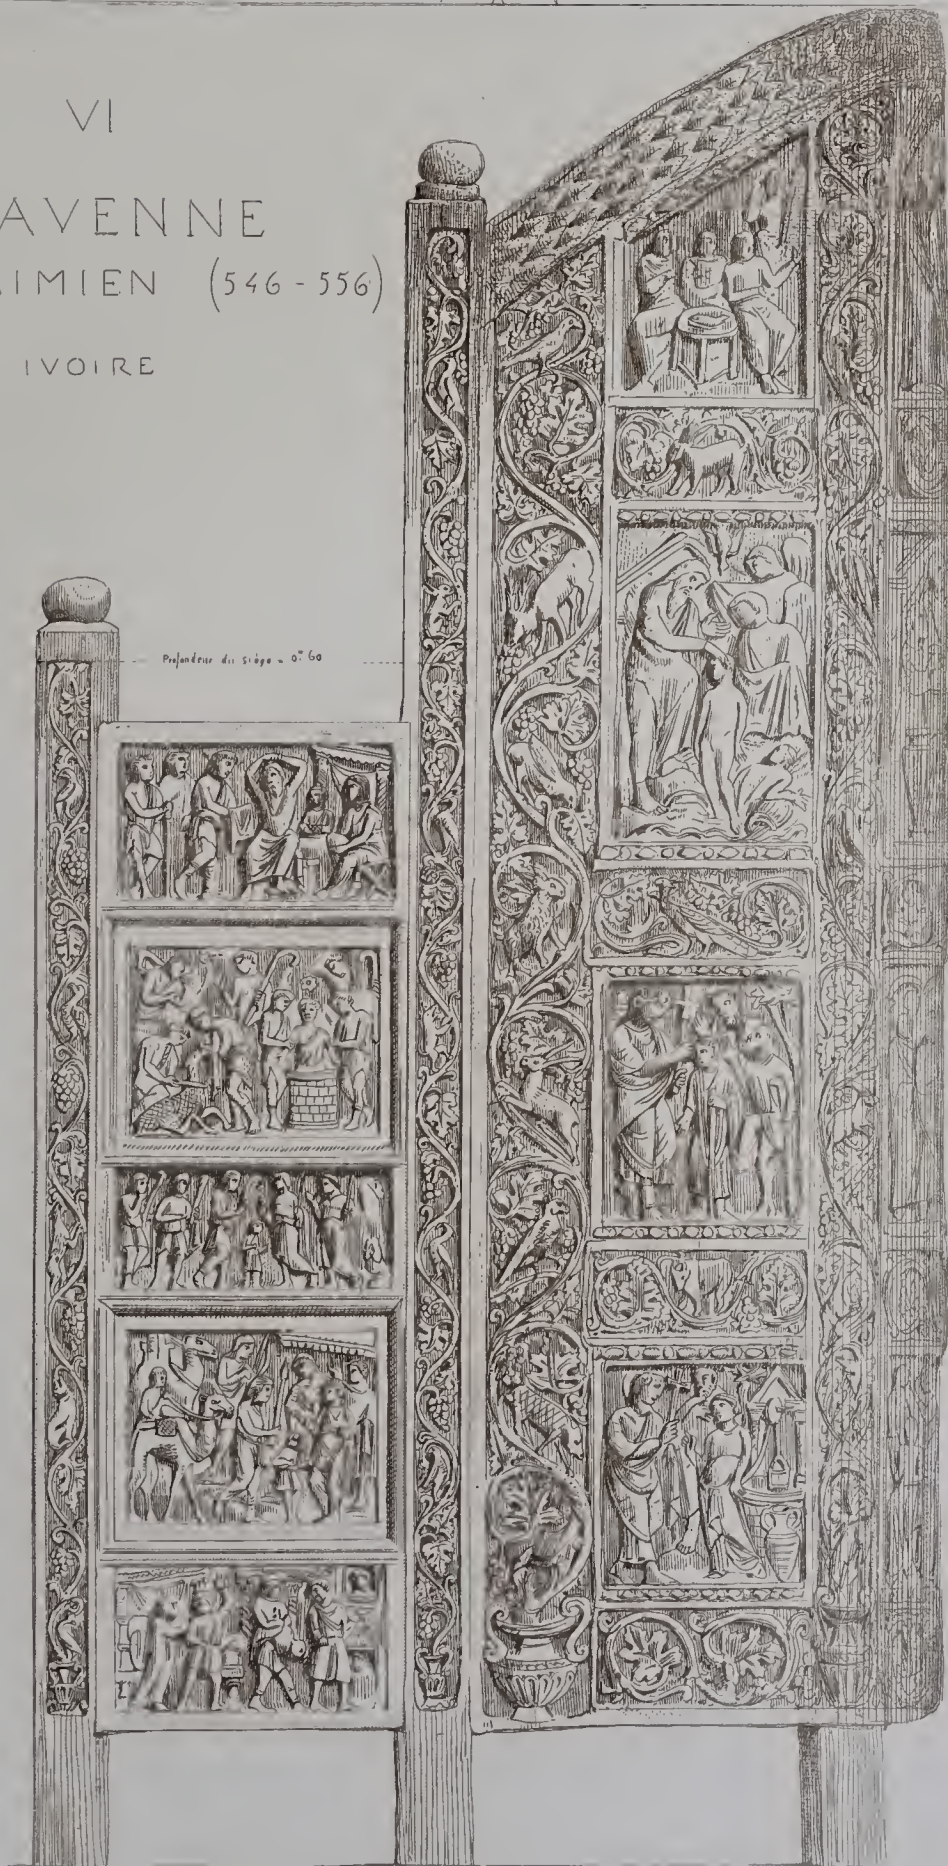 VI
AVENNE
IMIEN (546-556)
IVOIRE
Profondeur du siège = 0m 60